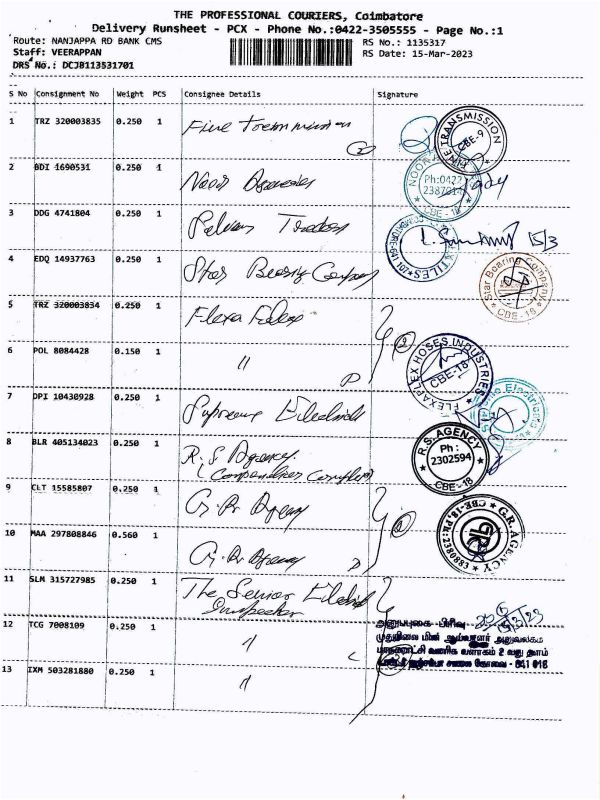 THE PROFESSIONAL COURIERS, Coimbatore
Delivery Runsheet - PCX - Phone No.:0422-3505555 - Page No.:1
Route: NANJAPPA RD BANK CMS
RS No.: 1135317
Staff: VEERAPPAN
RS Date: 15-Mar-2023
DRS No.: DCJ8113531701
S No Consignment No Weight PCS Consignee Details Signature
1 TRZ 320003835 0.250 1 Fine
FINE TRANSMISSION CBE-9
2 BDI 1690531 0.250 1 Noor Agencies
NOOR Ph:0422 CBE - 18
3 DDG 4741804 0.250 1 Traders
15/3
TILES
4 EDQ 14937763 0.250 1 Star Bearing Company
Star Bearing Company CBE - 18
5 TRZ 320003834 0.250 1 Flexa
6 POL 8084428 0.150 1 "
FLEXAPLEX HOSES INDUSTRIES CBE-18
7 DPI 10430928 0.250 1 Supreme Electricals
8 BLR 405134023 0.250 1 R.S Agency
R.S. AGENCY Ph : 2302594 CBE - 18
9 CLT 15585807 0.250 1 G.R. Agency
10 MAA 297808846 0.560 1 G.R. Agency
G.R. AGENCY GR
11 SLM 315727985 0.250 1 The Senior Electrical
Inspector
12 TCG 7008109 0.250 1 "
முதுநிலை மின் ஆய்வாளர் அலுவலகம்
641 018
13 IXM 503281880 0.250 1 "